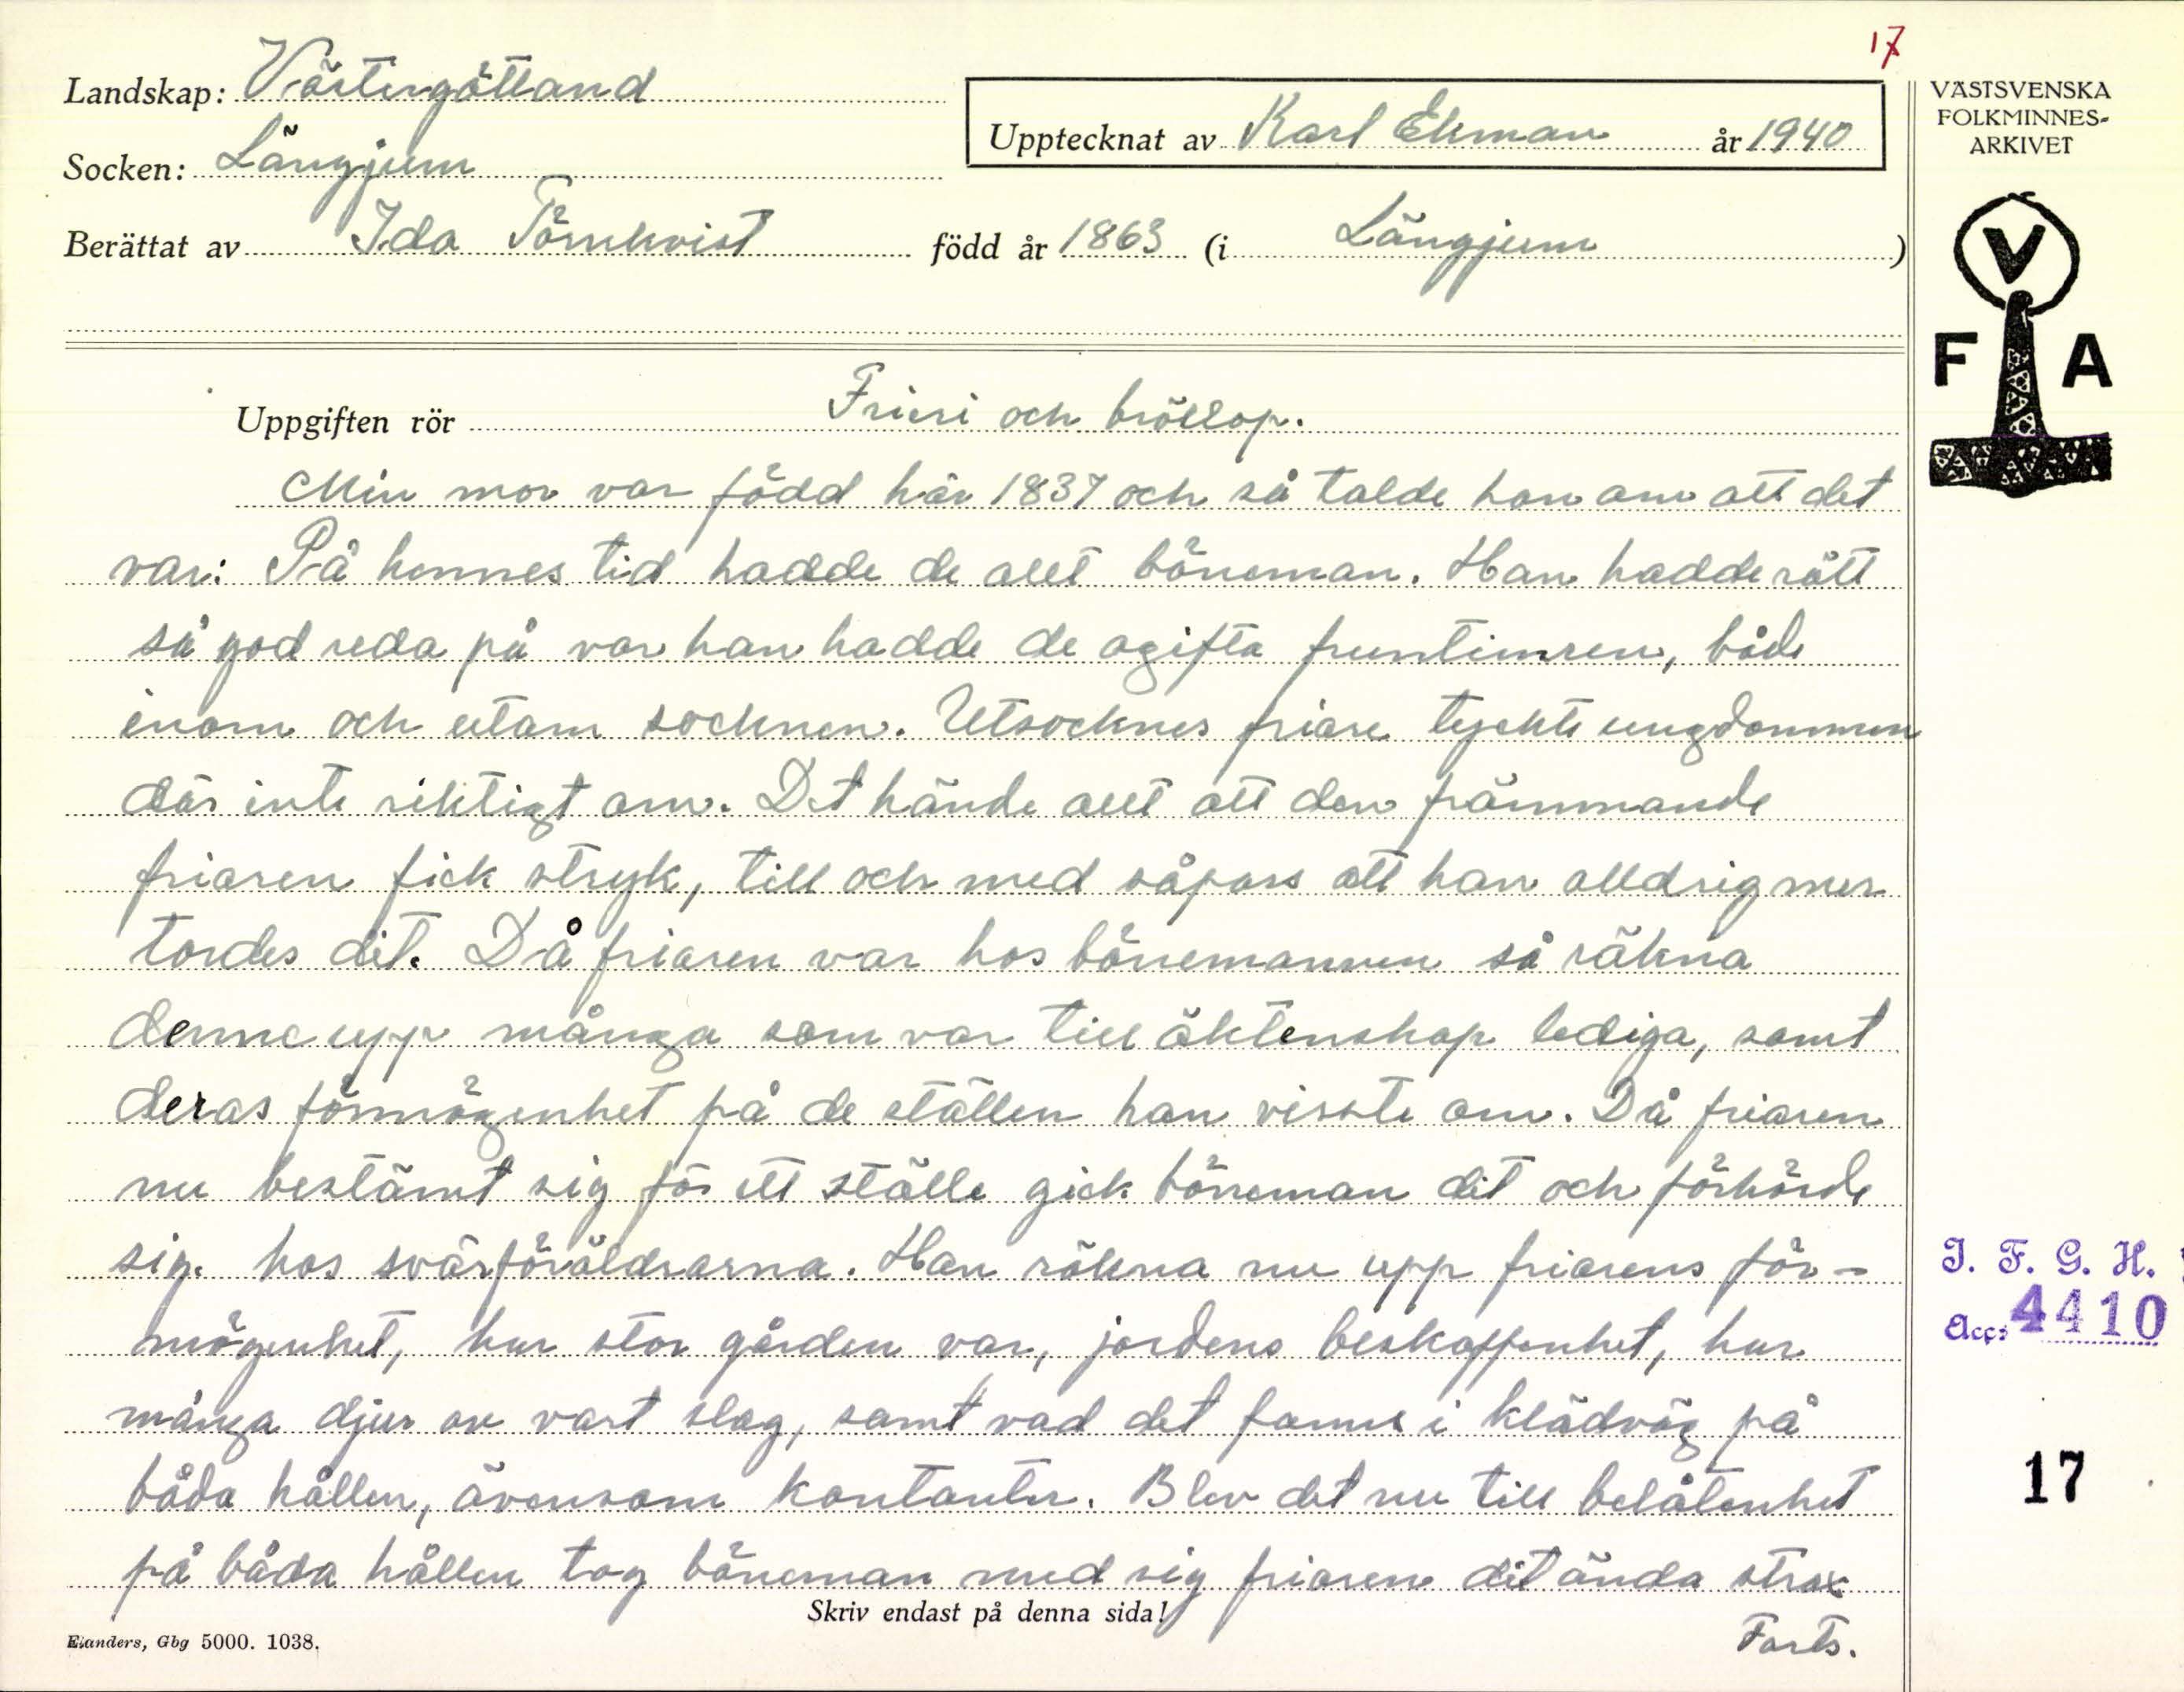 17
Landskap: Västergötland
Upptecknat av Karl Ekman år 1940
Socken: Längjum
Berättat av Ida Törnkvist född år 1863 (i Längjum)
VÄSTSVENSKA
FOLKMINNES-
ARKIVET
V
F A
Uppgiften rör Frieri och bröllop.
Min mor var född här 1837 och så talde hon om att det
var: På hennes tid hadde de allt böneman. Han hadde rätt
så god reda på var han hadde de ogifta fruntimren, både
inom och utom socknen. Utsocknes friare tyckte ungdommen
där inte riktigt om. Det hände allt att den främmande
friaren fick stryk, till och med såpass att han alldrig mer
tordes dit. Då friaren var hos bönemannen så räkna
denne upp många som var till äktenskap lediga, samt
deras förmögenhet på de ställen han visste om. Då friaren
nu bestämt sig för ett ställe gick böneman dit och förhörde
sig. hos svärföräldrarna. Han räkna nu upp friarens för-
mögenhet, hur stor gården var, jordens beskaffenhet, hur
många djur av vart slag, samt vad det fanns i klädväg på
båda hållen, ävensom kontanter. Blev det nu till belåtenhet
på båda hållen tog böneman med sig friaren dit ända strax
Forts.
Skriv endast på denna sida!
Elanders, Gbg 5000. 1038.
I. F. G. H.
Acc: 4410
17